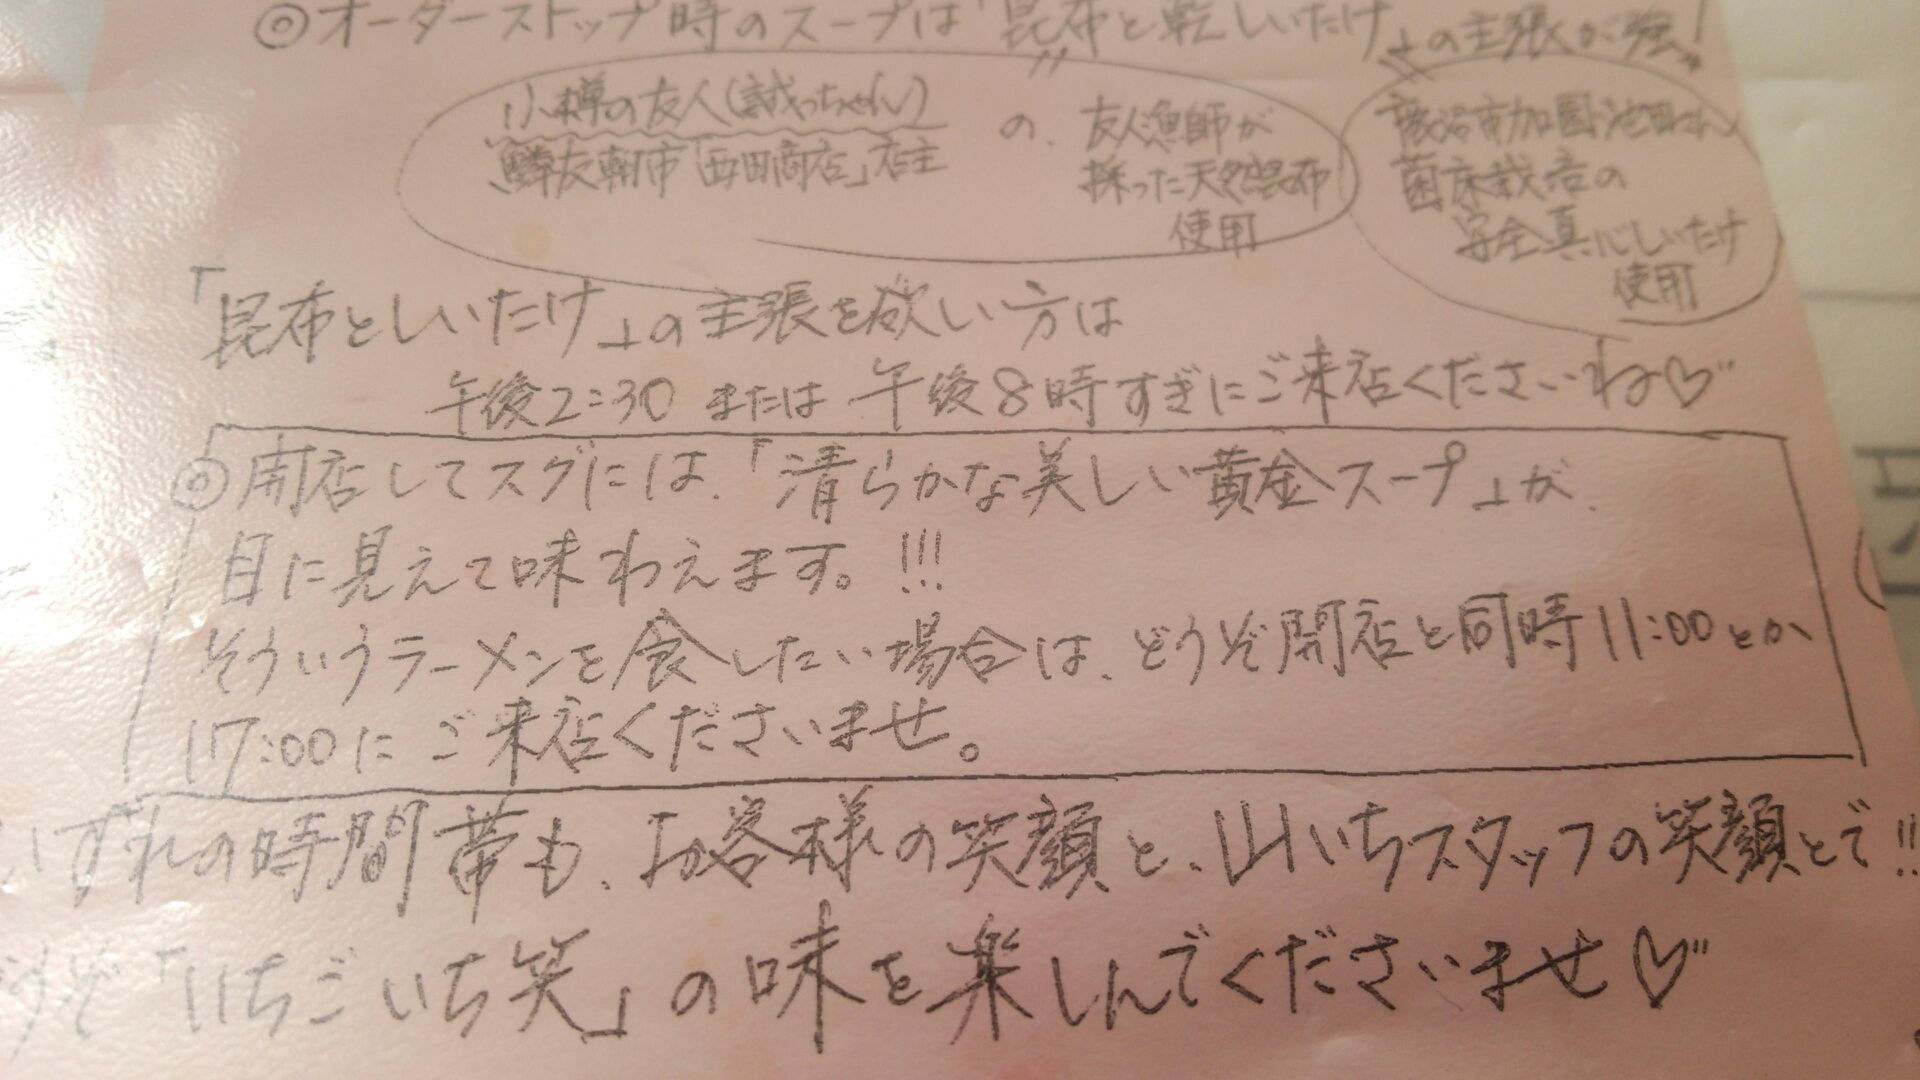 ◎オーダーストップ時のスープは「昆布と乾しいたけ」の主張が強!
小樽の友人(誠っちゃん)
鱗友朝市「西田商店」店主
の、友人漁師が
採った天然昆布
使用
市加園池田さん
菌床栽培の
安全真心しいたけ
使用
「昆布としいたけ」の主張を欲しい方は
午後2:30 または 午後8時すぎにご来店くださいね♡"
◎開店してスグには、「清らかな美しい黄金スープ」が、
目に見えて味わえます。!!!
そういうラーメンを食したい場合は、どうぞ開店と同時11:00とか
17:00にご来店くださいませ。
いずれの時間帯も、お客様の笑顔と、山いちスタッフの笑顔とで!!
どうぞ「いちごいち笑」の味を楽しんでくださいませ♡"